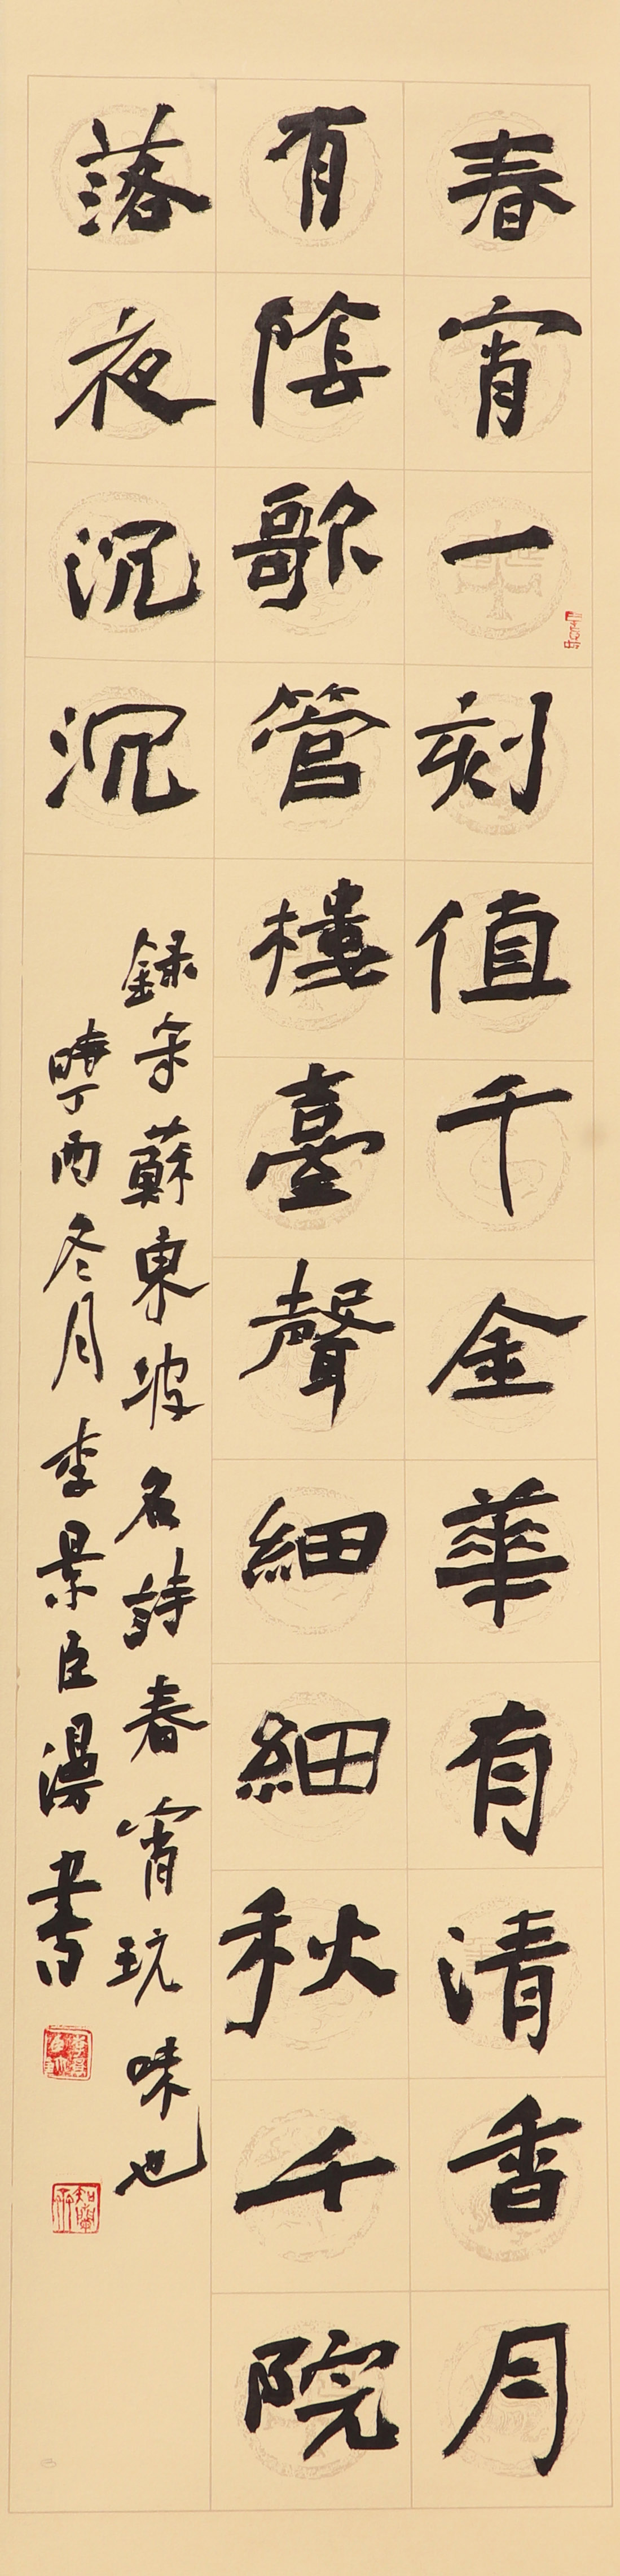 春宵一刻值千金華有清香月
有陰歌管樓臺聲細細秋千院
落夜沉沉
錄宋蘇東坡名詩春宵玩味也
時丁酉冬月李景臣漫書